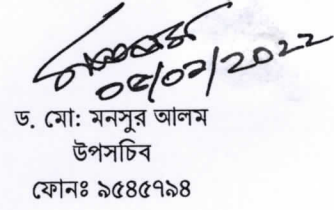 ০৫/০২/২০২২
ড. মো: মনসুর আলম
উপসচিব
ফোনঃ ৯৫৪৫৭৯৪